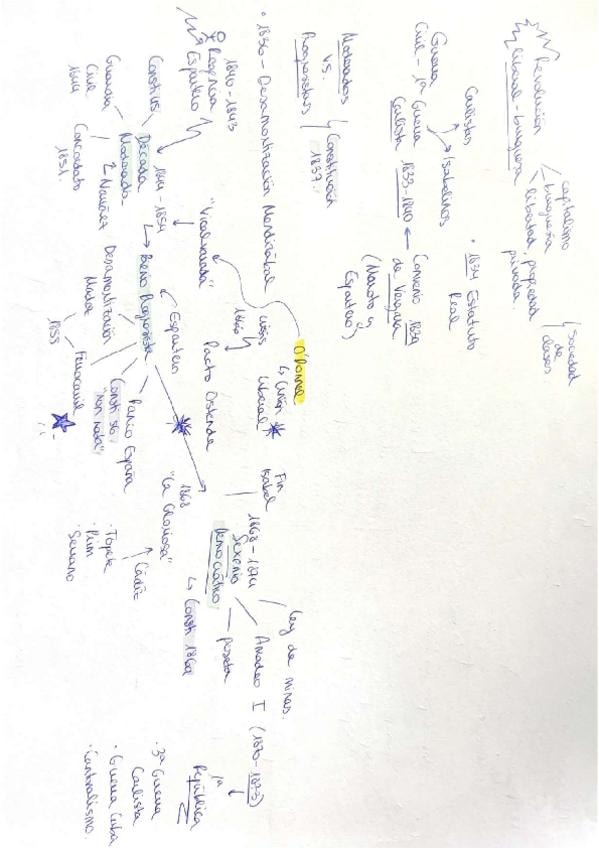 Revolución
liberal-burguesa
capitalismo
burguesía
libertad, propiedad
privada.
sociedad
de
clases
Carlistas
Isabelinos
Guerra
Civil - 1ª Guerra
Carlista 1833-1840
Convenio 1839
de Vergara
(Maroto y
Espartero)
• 1834 Estatuto
Real
Moderados
vs.
Progresistas
Constitución
1837.
• 1836 - Desamortización Mendizábal
1840-1843
Regencia
Espartero
"Vicalvarada"
crisis
1866
O'Donnell
↳ Unión
Liberal
Pacto Ostende
Fin
Isabel
1868-1874
Sexenio
Democrático
Ley de minas.
Amadeo I (1870-1873)
peseta
1ª
República
↳ Consti 1869
Consti 45
Década
Moderada
1844-1854
Guardia
Civil
1844
Concordato
1851.
Narváez
Bienio Progresista
Espartero
Desamortización
Madoz
Ferrocarril
1855
Consti 56
"non nata"
Banco España
1868
"La Gloriosa"
Cádiz
• Topete
• Prim
• Serrano
• 3ª Guerra
Carlista
• Guerra Cuba
• Cantonalismo.